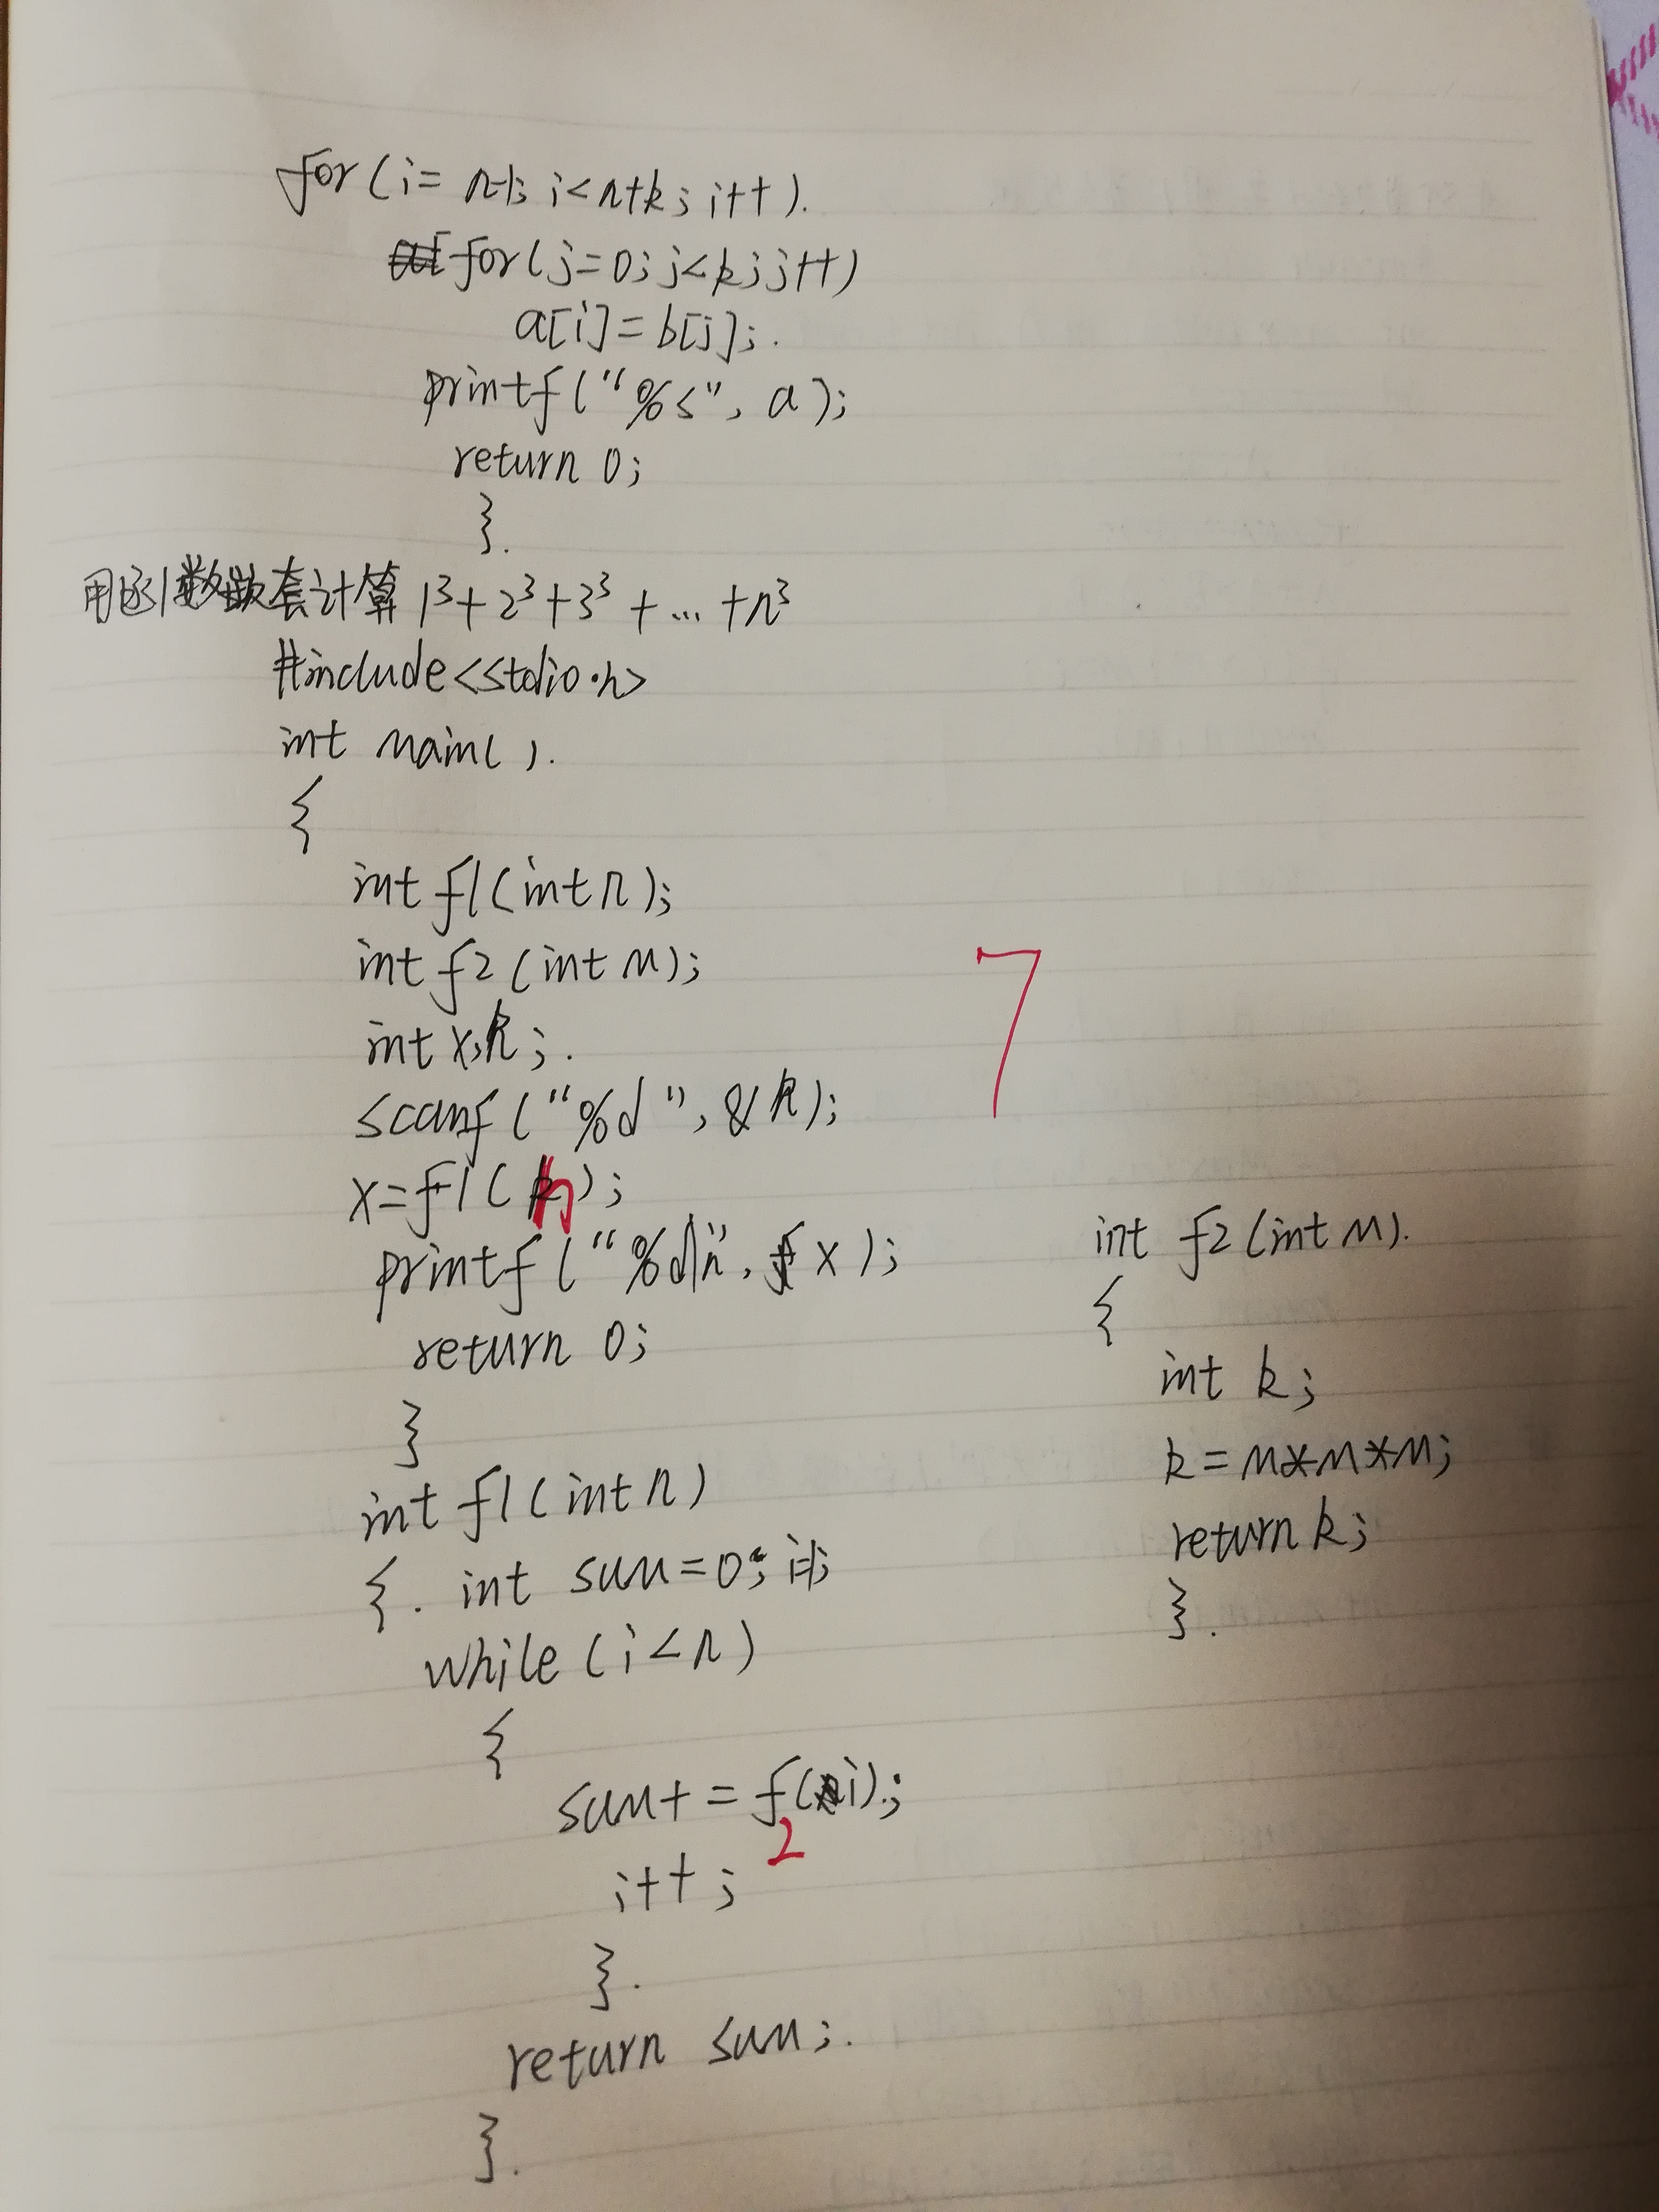 for(i=n-1;i<n+k;i++).
for(j=0;j<k;j++)
a[i]=b[j];.
printf("%s",a);
return 0;
}.
用函数嵌套计算 1³+2³+3³+...+n³
#include<stdio.h>
int main().
{
int f1(int n);
int f2(int m);
int x,n;.
scanf("%d",&n);
x=f1(n);
printf("%d\n",x);
return 0;
}
int f1(int n)
{. int sum=0;i=1;
while(i<n)
{
sum+=f2(i).;
i++;
}.
return sum;.
}.
7
int f2(int m).
{
int k;
k=m*m*m;
return k;
}.